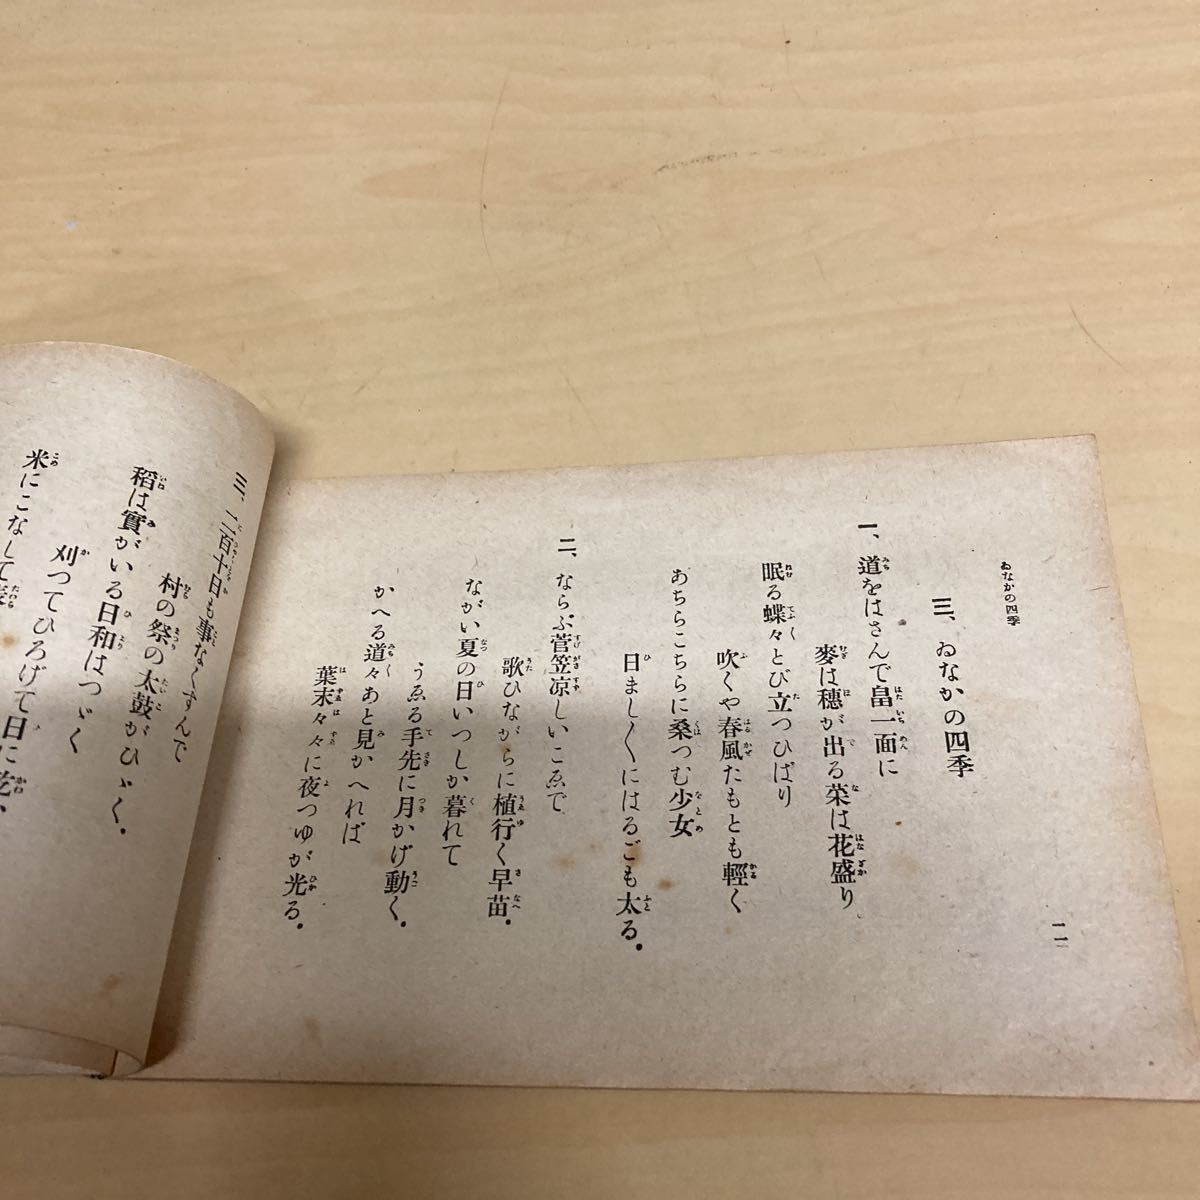 ゐなかの四季
二
三、ゐなかの四季
一、道をはさんで畠一面に
麥は穗が出る菜は花盛り
眠る蝶々とび立つひばり
吹くや春風たもとも輕く
あちらこちらに桑つむ少女
日まし〱にはるごも太る．
二、ならぶ菅笠凉しいこゑで
歌ひながらに植行く早苗．
ながい夏の日いつしか暮れて
うゑる手先に月かげ動く．
かへる道々あと見かへれば
葉末々々に夜つゆが光る．
三、二百十日も事なくすんで
村の祭の太鼓がひゞく．
稻は實がいる日和はつゞく
刈つてひろげて日に乾か
米にこなして俵